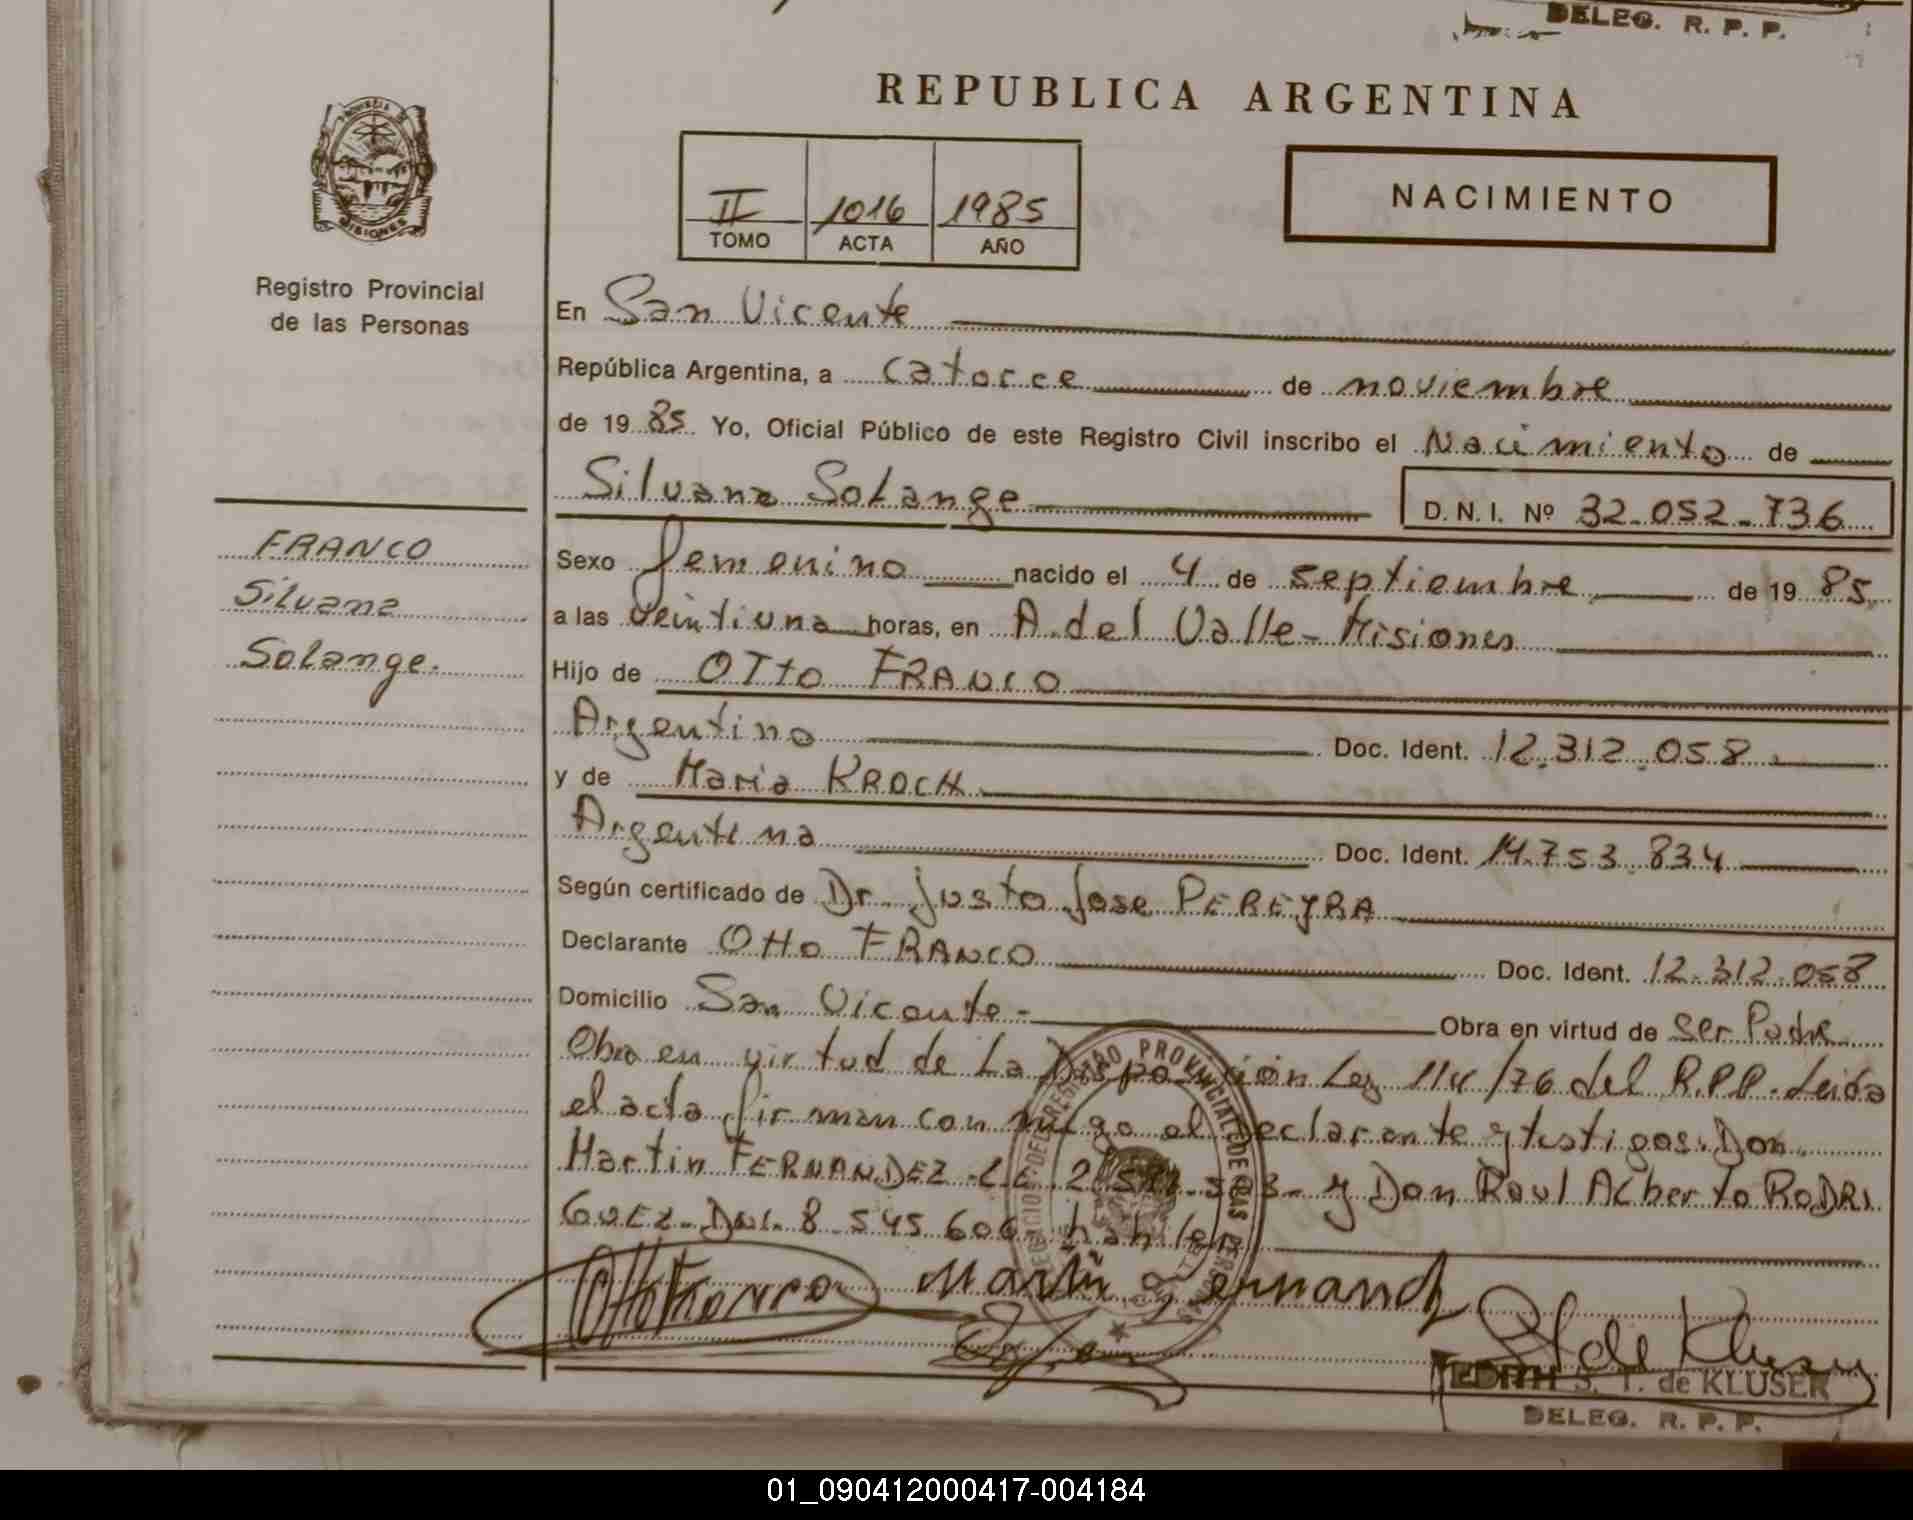 DELEG. R. P. P.
REPUBLICA ARGENTINA
PROVINCIA
MISIONES
II 1016 1985
TOMO ACTA AÑO
NACIMIENTO
Registro Provincial
de las Personas
En San Vicente
República Argentina, a catorce de noviembre
de 19 85 Yo, Oficial Público de este Registro Civil inscribo el Nacimiento de
Silvana Solange D. N. I. Nº 32.052.736
FRANCO
Silvana
Solange.
Sexo femenino nacido el 4 de septiembre de 19 85
a las veintiuna horas, en A. del Valle - Misiones
Hijo de OTTO FRANCO
Argentino Doc. Ident. 12.312.058
y de Maria KROCH
Argentina Doc. Ident. 14.753.834
Según certificado de Dr. Justo Jose PEREYRA
Declarante Otto FRANCO Doc. Ident. 12.312.058
Domicilio San Vicente - Obra en virtud de ser Padre
Obra en virtud de La Disposición Ley 114/76 del R.P.P. Leida
el acta firman conmigo el declarante y testigos. Don
Martin FERNANDEZ - L.E. y Don Raul Alberto RODRI
GUEZ - DNI. 8.545.606
DELEGACION DEL REGISTRO PROVINCIAL DE LAS PERSONAS
Otto Franco Martin Fernandez
EDITH S. T. de KLUSER
DELEG. R. P. P.
01_090412000417-004184